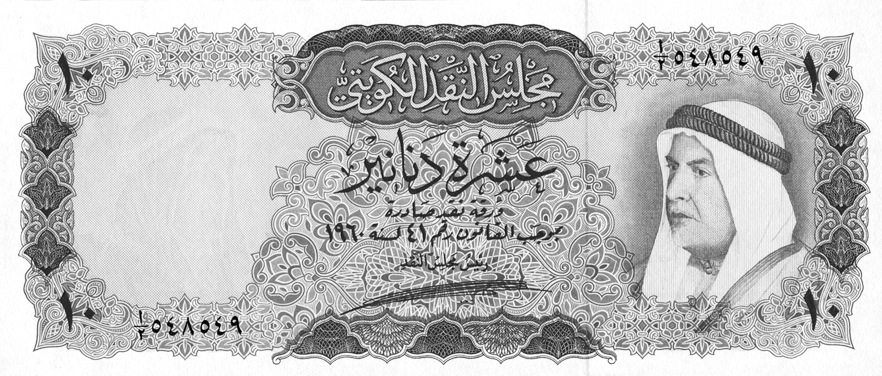 ١٠
١/٢ ٥٤٨٥٤٩
١٠
مجلس النقد الكويتي
عشرة دنانير
ورقة نقد صادرة
بموجب القانون رقم ٤١ لسنة ١٩٦٠
رئيس مجلس النقد
١٠
١/٢ ٥٤٨٥٤٩
١٠